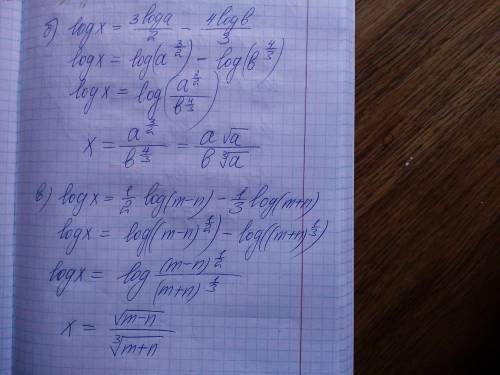 б) log x = 3 log a / 2 − 4 log b / 3
log x = log(a^{3/2}) − log(b^{4/3})
log x = log(a^{3/2} / b^{4/3})
x = a^{3/2} / b^{4/3} = a√a / b∛a
в) log x = 1/2 log(m−n) − 1/3 log(m+n)
log x = log((m−n)^{1/2}) − log((m+n)^{1/3})
log x = log (m−n)^{1/2} / (m+n)^{1/3}
x = √m−n / ∛m+n